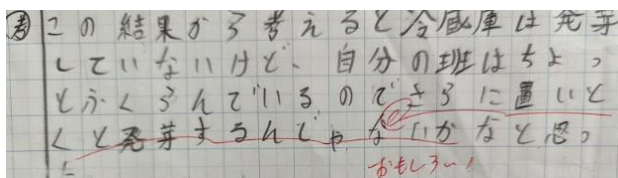 考 この結果から考えると冷蔵庫は発芽
していないけど、自分の班はちょっ
とふくらんでいるのでさらに置いと
くと発芽するんじゃないかなと思っ
た
おもしろ〜!